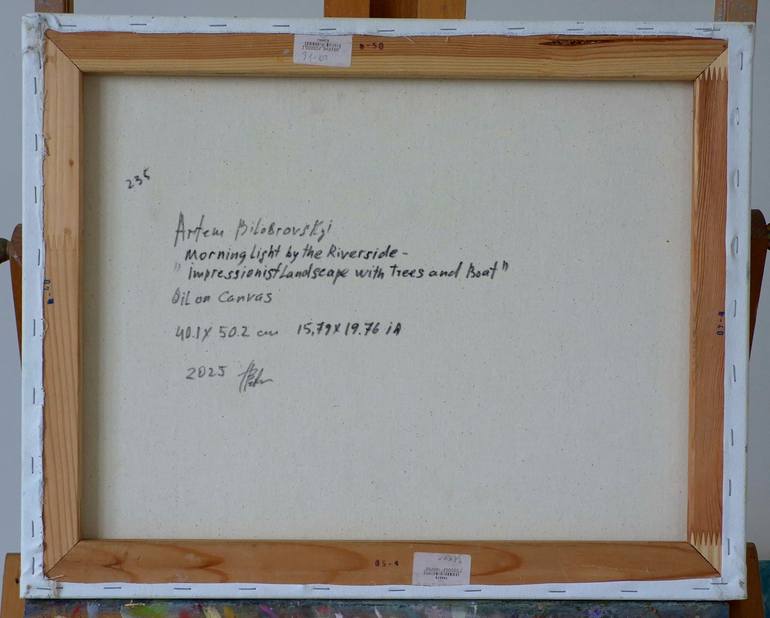 в-50
91-01
235
Artem Bilobrovskyi
Morning light by the Riverside -
"Impressionist Landscape with Trees and Boat"
Oil on Canvas
40.1 X 50.2 cm 15,79 X 19.76 in
2025
05-4